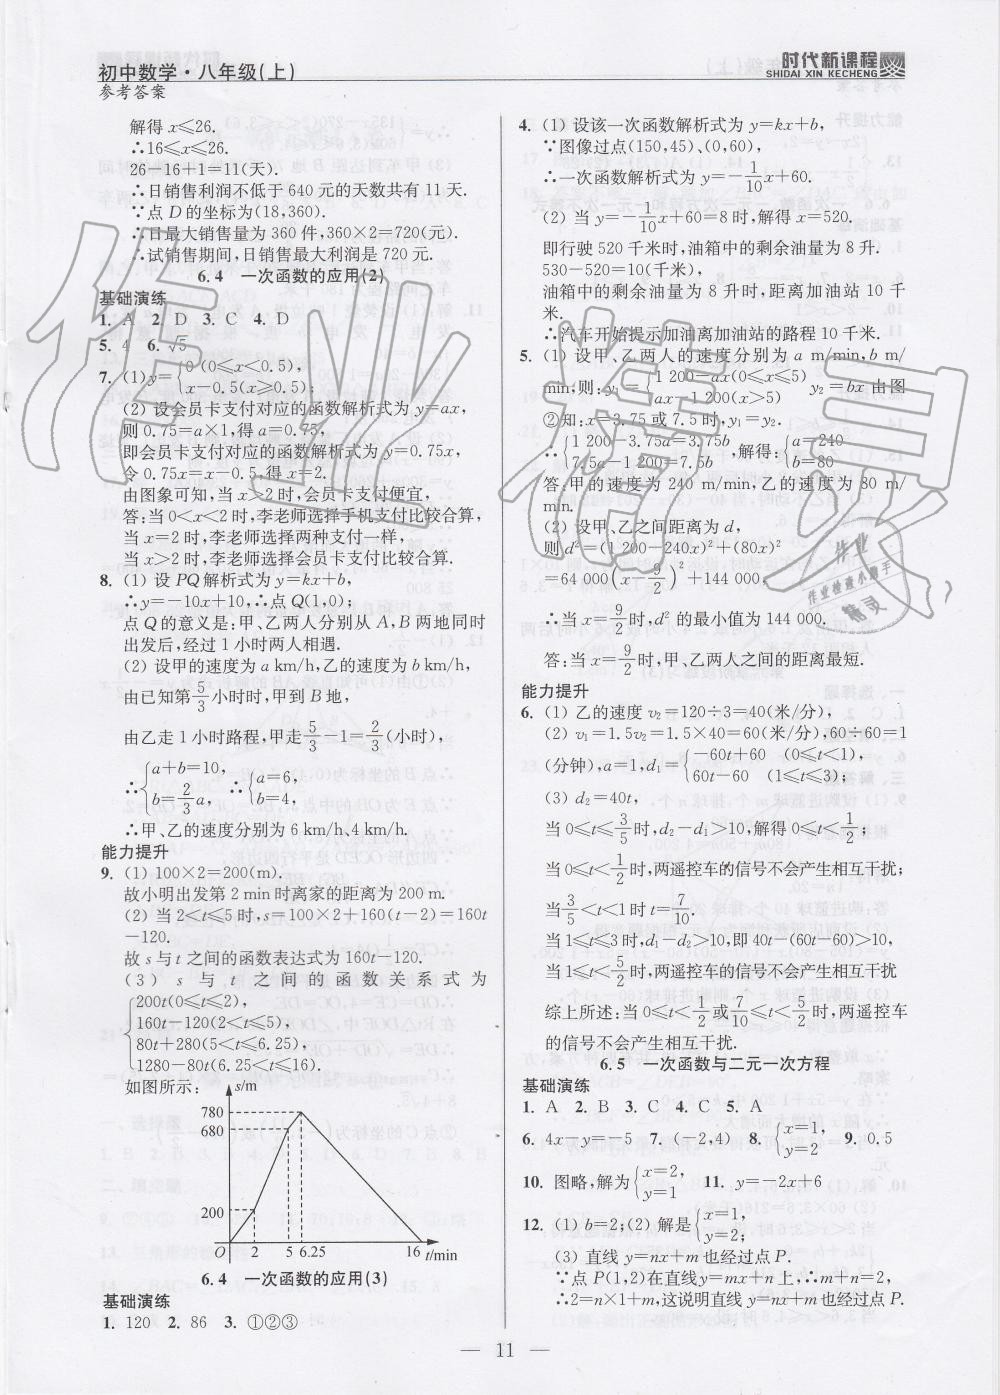 初中数学·八年级(上)
参考答案
时代新课程
SHIDAI XIN KECHENG
解得 x⩽26.
∴16⩽x⩽26.
26-16+1=11(天).
∴日销售利润不低于 640 元的天数共有 11 天.
∵点 D 的坐标为(18,360).
∴日最大销售量为 360 件,360×2=720(元).
∴试销售期间,日销售最大利润是 720 元.
6.4 一次函数的应用(2)
基础演练
1. A 2. D 3. C 4. D
5. 4 6. √5
7. (1)y={0 (0⩽x<0.5),
x-0.5(x⩾0.5);
(2) 设会员卡支付对应的函数解析式为 y=ax,
则 0.75=a×1,得 a=0.75,
即会员卡支付对应的函数解析式为 y=0.75x,
令 0.75x=x-0.5,得 x=2.
由图象可知,当 x>2 时,会员卡支付便宜,
答:当 0<x<2 时,李老师选择手机支付比较合算,
当 x=2 时,李老师选择两种支付一样,
当 x>2 时,李老师选择会员卡支付比较合算.
8. (1) 设 PQ 解析式为 y=kx+b,
∴y=-10x+10,∴点 Q(1,0);
点 Q 的意义是:甲、乙两人分别从 A,B 两地同时
出发后,经过 1 小时两人相遇.
(2) 设甲的速度为 a km/h,乙的速度为 b km/h,
由已知第 5/3 小时时,甲到 B 地,
由乙走 1 小时路程,甲走 5/3-1=2/3(小时),
∴{a+b=10, b=2/3 a, ∴{a=6, b=4,
∴甲、乙的速度分别为 6 km/h、4 km/h.
能力提升
9. (1) 100×2=200(m).
故小明出发第 2 min 时离家的距离为 200 m.
(2) 当 2<t⩽5 时,s=100×2+160(t-2)=160t
-120.
故 s 与 t 之间的函数表达式为 160t-120.
(3) s 与 t 之间的函数关系式为
{200t(0⩽t⩽2),
160t-120(2<t⩽5),
80t+280(5<t⩽6.25),
1280-80t(6.25<t⩽16).
如图所示:
s/m
780
680
200
O 2 5 6.25 16 t/min
6.4 一次函数的应用(3)
基础演练
1. 120 2. 86 3. ①②③
4. (1) 设该一次函数解析式为 y=kx+b,
∵图像过点(150,45)、(0,60),
∴一次函数解析式为 y=-1/10 x+60.
(2) 当 y=-1/10 x+60=8 时,解得 x=520.
即行驶 520 千米时,油箱中的剩余油量为 8 升.
530-520=10(千米),
油箱中的剩余油量为 8 升时,距离加油站 10 千
米.
∴汽车开始提示加油离加油站的路程 10 千米.
5. (1) 设甲、乙两人的速度分别为 a m/min,b m/
min,则:y₁={1 200-ax(0⩽x⩽5) ax-1 200(x>5) y₂=bx 由图
②知:x=3.75 或 7.5 时,y₁=y₂.
∴{1 200-3.75a=3.75b 7.5a-1 200=7.5b ,解得:{a=240 b=80
答:甲的速度为 240 m/min,乙的速度为 80 m/
min.
(2) 设甲、乙之间距离为 d,
则 d²=(1 200-240x)²+(80x)²
=64 000(x-9/2)²+144 000,
∴当 x=9/2 时,d² 的最小值为 144 000.
答:当 x=9/2 时,甲、乙两人之间的距离最短.
能力提升
6. (1) 乙的速度 v₂=120÷3=40(米/分),
(2) v₁=1.5v₂=1.5×40=60(米/分),60÷60=1
(分钟),a=1,d₁={-60t+60 (0⩽t<1) 60t-60 (1⩽t⩽3);
(3) d₂=40t,
当 0⩽t⩽3/5 时,d₂-d₁>10,解得 0⩽t<1/2;
当 0⩽t<1/2 时,两遥控车的信号不会产生相互干扰;
当 3/5<t<1 时 t=7/10.
当 1⩽t⩽3 时,d₁-d₂>10,即 40t-(60t-60)>10,
当 1⩽t<5/2 时,两遥控车的信号不会产生相互干扰
综上所述:当 0⩽t<1/2 或 7/10⩽t<5/2 时,两遥控车
的信号不会产生相互干扰.
6.5 一次函数与二元一次方程
基础演练
1. A 2. B 3. C 4. C 5. A
6. 4x-y=-5 7. (-2,4) 8. {x=1, y=2 9. 0.5
10. 图略,解为{x=2, y=1 11. y=-2x+6
12. (1) b=2;(2) 解是{x=1, y=2;
(3) 直线 y=nx+m 也经过点 P.
∵点 P(1,2)在直线 y=mx+n 上,∴m+n=2,
∴2=n×1+m,这说明直线 y=nx+m 也经过点 P.
— 11 —
作业精灵
作业
作业检查小助手
精灵